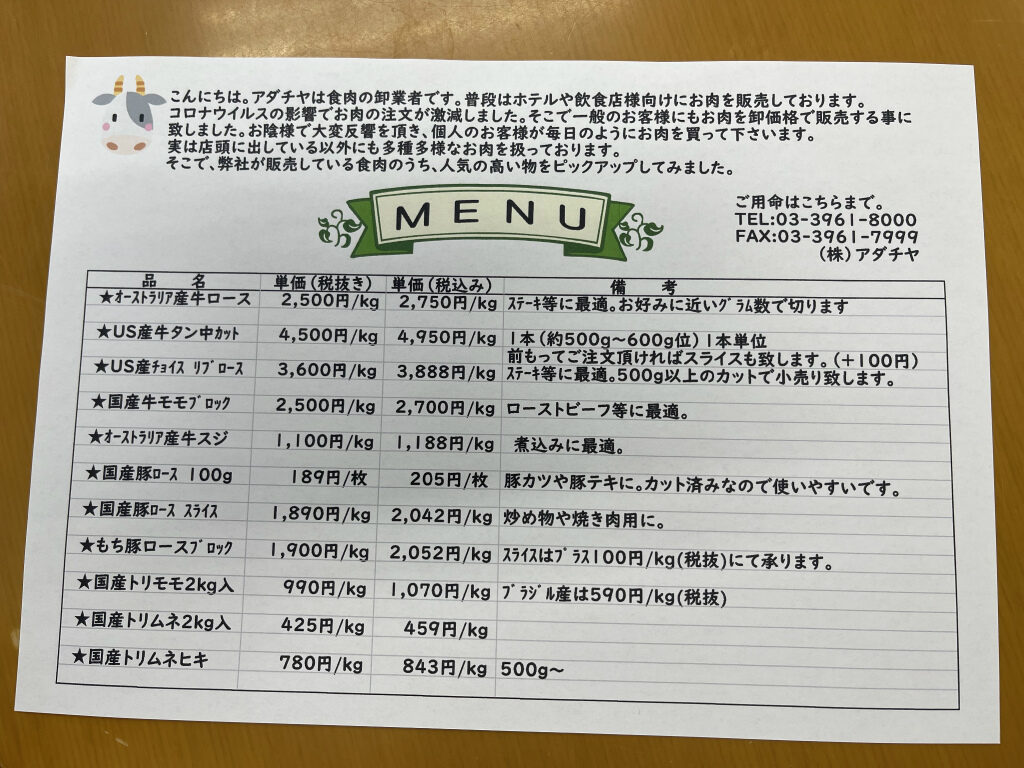 こんにちは。アダチヤは食肉の卸業者です。普段はホテルや飲食店様向けにお肉を販売しております。
コロナウイルスの影響でお肉の注文が激減しました。そこで一般のお客様にもお肉を卸価格で販売する事に
致しました。お陰様で大変反響を頂き、個人のお客様が毎日のようにお肉を買って下さいます。
実は店頭に出している以外にも多種多様なお肉を扱っております。
そこで、弊社が販売している食肉のうち、人気の高い物をピックアップしてみました。
MENU
ご用命はこちらまで。
TEL:03-3961-8000
FAX:03-3961-7999
(株)アダチヤ
品 名 単価(税抜き) 単価(税込み) 備 考
★ｵｰｽﾄﾗﾘｱ産牛ロース 2,500円/kg 2,750円/kg ｽﾃｰｷ等に最適。お好みに近いｸﾞﾗﾑ数で切ります
★US産牛タン中ｶｯﾄ 4,500円/kg 4,950円/kg 1本(約500g～600g位)1本単位
前もってご注文頂ければスライスも致します。(＋100円)
★US産ﾁｮｲｽ ﾘﾌﾞﾛｰｽ 3,600円/kg 3,888円/kg ｽﾃｰｷ等に最適。500g以上のカットで小売り致します。
★国産牛モモﾌﾞﾛｯｸ 2,500円/kg 2,700円/kg ローストビーフ等に最適。
★ｵｰｽﾄﾗﾘｱ産牛スジ 1,100円/kg 1,188円/kg 煮込みに最適。
★国産豚ﾛｰｽ 100g 189円/枚 205円/枚 豚カツや豚テキに。カット済みなので使いやすいです。
★国産豚ﾛｰｽ ｽﾗｲｽ 1,890円/kg 2,042円/kg 炒め物や焼き肉用に。
★もち豚ロースﾌﾞﾛｯｸ 1,900円/kg 2,052円/kg ｽﾗｲｽはﾌﾟﾗｽ100円/kg(税抜)にて承ります。
★国産トリモモ2kg入 990円/kg 1,070円/kg ﾌﾞﾗｼﾞﾙ産は590円/kg(税抜)
★国産トリムネ2kg入 425円/kg 459円/kg
★国産トリムネヒキ 780円/kg 843円/kg 500g～